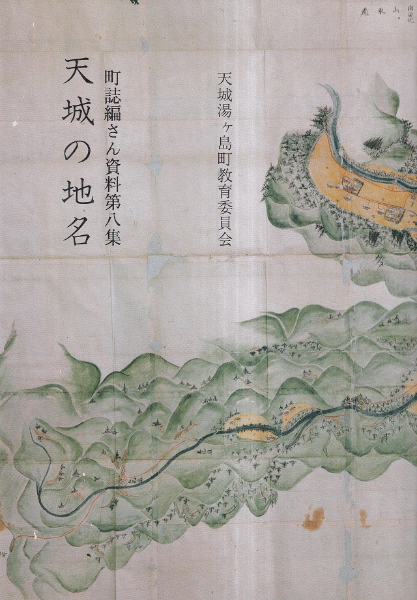 天城の地名
町誌編さん資料第八集
天城湯ヶ島町教育委員会